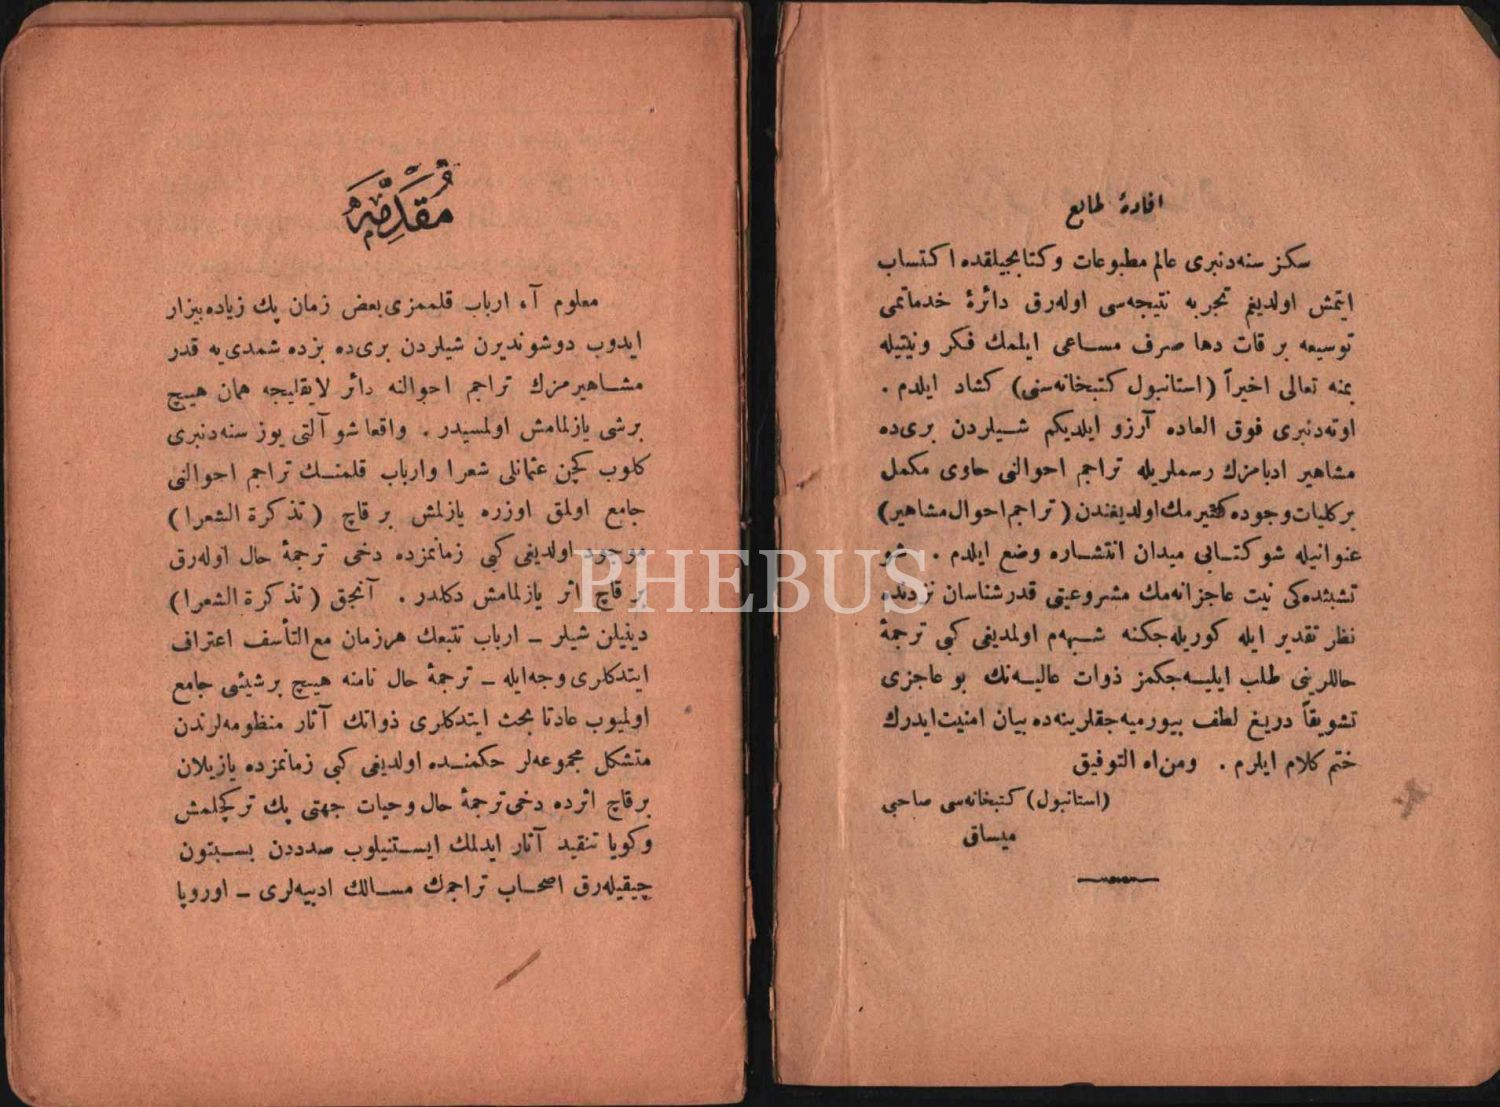 افادهٔ طابع
سكز سنه‌دنبرى عالم مطبوعات وكتابجيلقده اكتساب
ايتمش اولديغم تجربه نتيجه‌سى اوله‌رق دائرهٔ خدماتمى
توسيعه بر قات دها صرف مساعى ايلمك فكر ونيتيله
بمنه تعالى اخيراً (استانبول كتبخانه‌سنى) كشاد ايلدم .
اوته‌دنبرى فوق العاده آرزو ايلديكم شيلردن برى‌ده
مشاهير ادبامزك رسملريله تراجم احوالنى حاوى مكمل
بركليات وجوده كتيرمك اولديغندن (تراجم احوال مشاهير)
عنوانيله شو كتابى ميدان انتشاره وضع ايلدم . شو
تشبثده‌كى نيت عاجزانه‌مك مشروعيتى قدرشناسان نزدنده
نظر تقدير ايله كوريله‌جكنه شبهه‌م اولمديغى كبى ترجمهٔ
حاللرينى طلب ايليه‌جكمز ذوات عاليه‌نك بو عاجزى
تشويقاً دريغ لطف بيورميه‌جقلرينه‌ده بيان امنيت ايدرك
ختم كلام ايلرم . ومن اه التوفيق
(استانبول) كتبخانه‌سى صاحبى
ميساق
مُقَدِّمَه
معلوم آ، ارباب قلممزى بعض زمان پك زياده بيزار
ايدوب دوشونديرن شيلردن برى‌ده بزده شمدى‌يه قدر
مشاهيرمزك تراجم احوالنه دائر لايقليجه همان هيچ
برشى يازلمامش اولمسيدر . واقعا شو آلتى يوز سنه‌دنبرى
كلوب كچن عثمانلى شعرا وارباب قلمنك تراجم احوالنى
جامع اولمق اوزره يازلمش بر قاچ (تذكرة الشعرا)
موجود اولديغى كبى زمانمزده دخى ترجمهٔ حال اوله‌رق
بر قاچ اثر يازلمامش دكلدر . آنجق (تذكرة الشعرا)
دينيلن شيلر ــ ارباب تتبعك هرزمان مع التأسف اعتراف
ايتدكلرى وجه‌ايله ــ ترجمهٔ حال نامنه هيچ برشيئى جامع
اولميوب عادتا بحث ايتدكلرى ذواتك آثار منظومه‌لرندن
متشكل مجموعه‌لر حكمنده اولديغى كبى زمانمزده يازيلان
بر قاچ اثرده دخى ترجمهٔ حال وحيات جهتى پك تركچلمش
وكويا تنقيد آثار ايدلمك ايستنيلوب صدددن بسبتون
چيقيله‌رق اصحاب تراجمك مسالك ادبيه‌لرى ــ اوروپا
PHEBUS